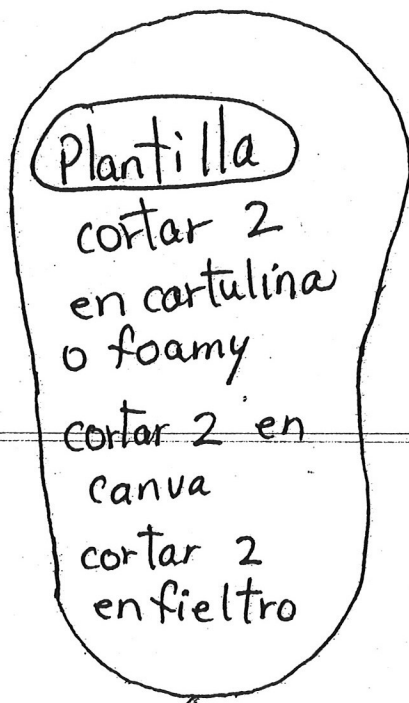 Plantilla
cortar 2
en cartulina
o foamy
cortar 2 en
canva
cortar 2
en fieltro